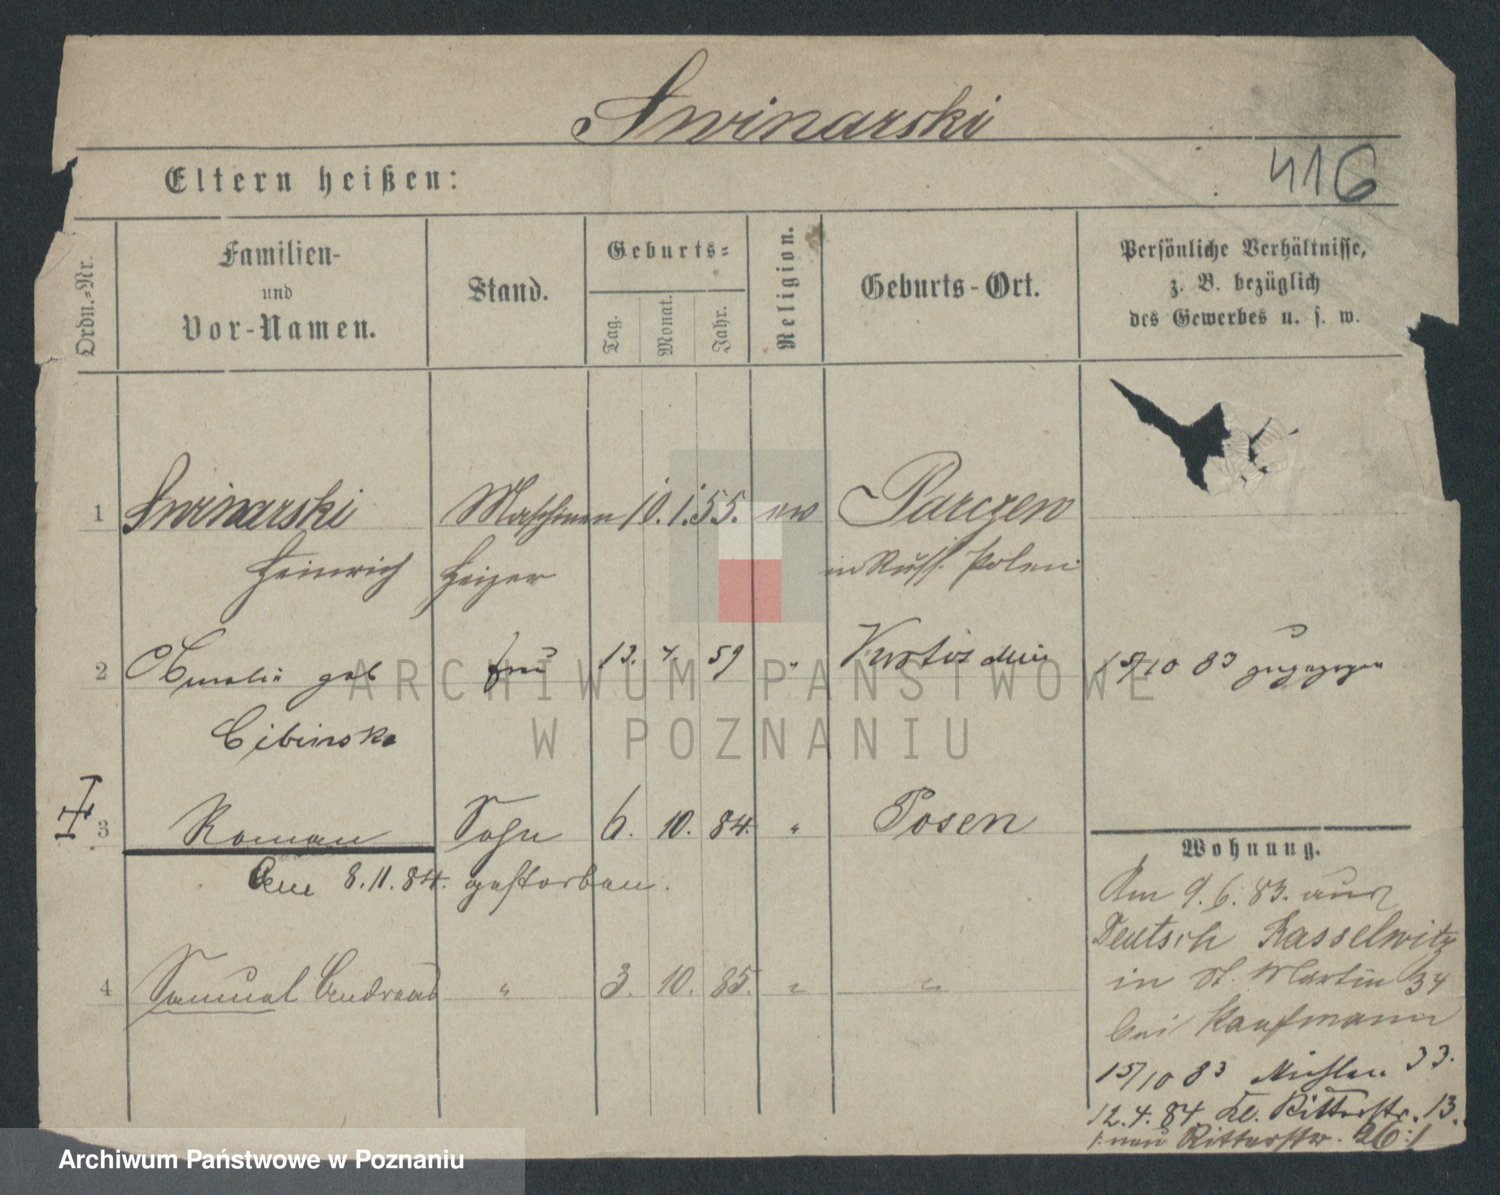 Swinarski
Eltern heißen:
416
Ordn.-Nr.
Familien-
und
Vor-Namen.
Stand.
Geburts-
Tag.
Monat.
Jahr.
Religion.
Geburts-Ort.
Persönliche Verhältnisse,
z. B. bezüglich
des Gewerbes u. s. w.
1 Swinarski Maschinen 10. 1. 55. ev Parczew
Heinrich Heizer in Russ. Polen
2 Amalie geb Frau 13. 59 " 15/10 83 zugezogen
Cibinska
3 Roman Sohn 6. 10. 84. " Posen
Am 8.11.84. gestorben.
Wohnung.
Am 9. 6. 83. aus
Deutsch Rasselwitz
in St. Martin 34
bei Kaufmann
4 Samuel Andreas " 3. 10. 85. " "
15/10 83 Mühlen 33.
12.4.84 Kl. Ritterstr. 13.
neu Ritterstr.
ARCHIWUM PAŃSTWOWE
W POZNANIU
Archiwum Państwowe w Poznaniu